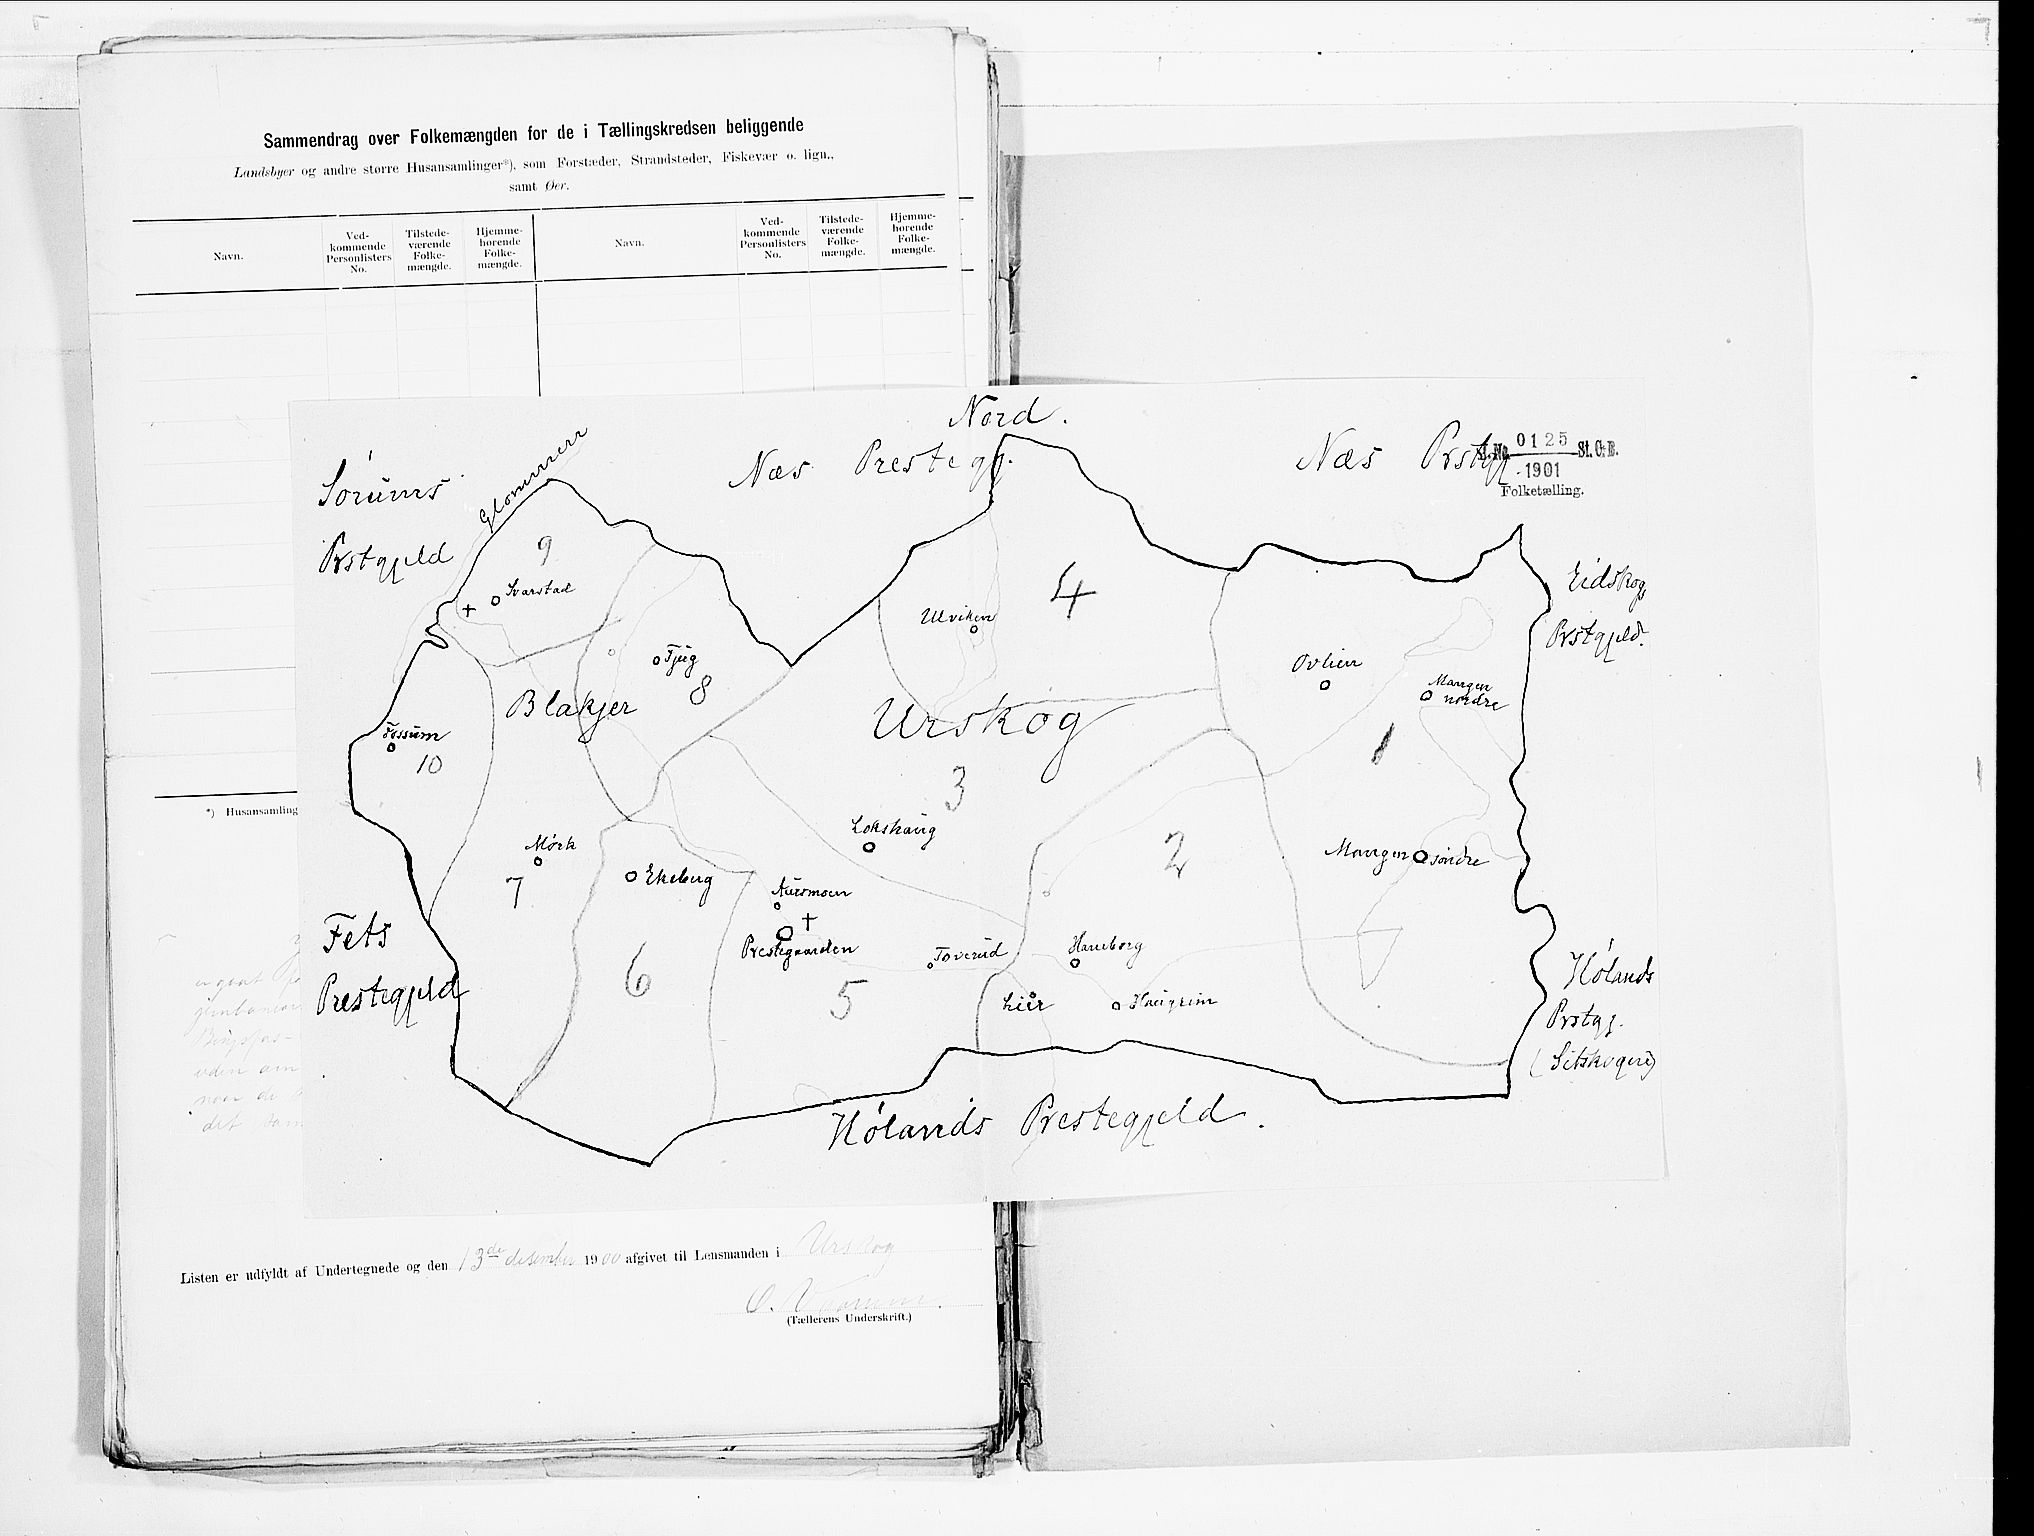 Sammendrag over Folkemængden for de i Tællingskredsen beliggende
Landsbyer og andre større Husansamlinger*), som Forstæder, Strandsteder, Fiskevær o. lign.,
samt Øer.
Navn.
Ved-
kommende
Personlisters
No.
Tilstede-
værende
Folke-
mængde.
Hjemme-
hørende
Folke-
mængde.
Navn.
Ved-
kommende
Personlisters
No.
Tilstede-
værende
Folke-
mængde.
Hjemme-
hørende
Folke-
mængde.
*) Husansamling
Nord.
Næs Prestegj.
Næs Prstgj
J. No. 0125 St. C. B.
1901
Folketælling.
Sørums
Prstgjeld
Glommen
9
Svarstad
Tjug
8
Blakjer
Fossum
10
Ulviken
4
Urskog
3
Ovlien
Mangen
nordre
1
Eidskog
Prstgjeld.
Lokshaug
2
Mangen søndre
Mørk
7
Ekeberg
6
Aursmoen
Prestegaarden
5
Toverud
Haneborg
Lier
Haugrim
Fets
Prestegjeld
Hølands
Prstgj.
(Setskogen)
Hølands Prestegjeld.
uden om
Listen er udfyldt af Undertegnede og den 13de desember 1900 afgivet til Lensmanden i Urskog
(Tællerens Underskrift.)